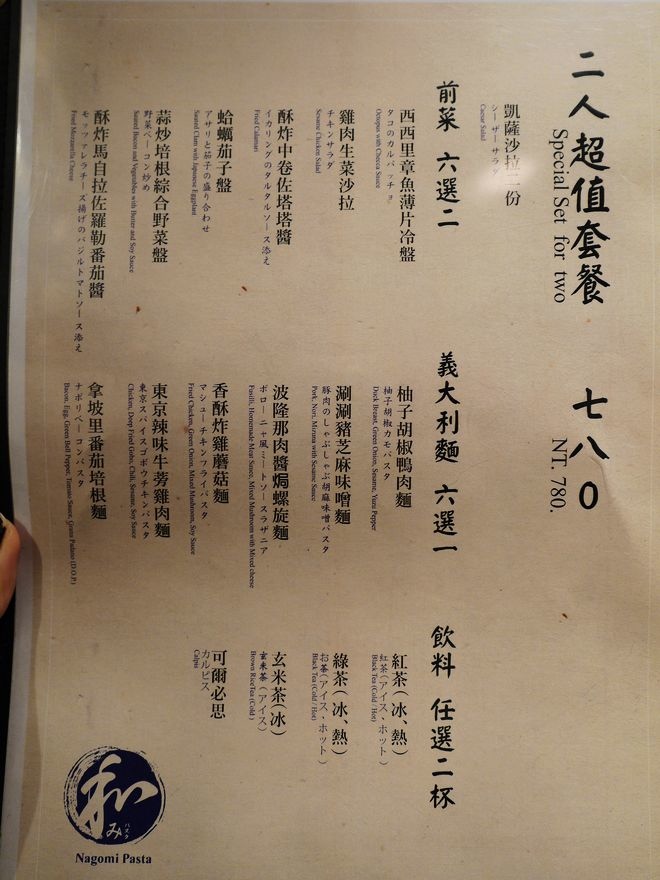 二人超值套餐 七八〇
Special Set for two NT. 780.
凱薩沙拉二份
シーザーサラダ
Caesar Salad
前菜 六選二
西西里章魚薄片冷盤
タコのカルパッチョ
Octopus with Cheece Sauce
雞肉生菜沙拉
チキンサラダ
Sesame Chicken Salad
酥炸中卷佐塔塔醬
イカリングのタルタルソース添え
Fried Calamari
蛤蠣茄子盤
アサリと茄子の盛り合わせ
Sauted Clam with Japanese Eggplant
蒜炒培根綜合野菜盤
野菜ベーコン炒め
Sauted Bacon and Vegetables with Butter and Soy Sauce
酥炸馬自拉佐羅勒番茄醬
モッツァレラチーズ揚げのバジルトマトソース添え
Fried Mozzarella Cheese
義大利麵 六選一
柚子胡椒鴨肉麵
柚子胡椒カモパスタ
Duck Breast, Green Onion, Sesame, Yuzu Pepper
涮涮豬芝麻味噌麵
豚肉のしゃぶしゃぶ胡麻味噌パスタ
Pork, Nori, Mizuna with Sesame Sauce
波隆那肉醬焗螺旋麵
ボローニャ風ミートソースラザニア
Fusilli, Homemade Meat Sauce, Mixed Mushroom with Mixed cheese
香酥炸雞蘑菇麵
マシューチキンフライパスタ
Fried Chicken, Green Onion, Mixed Mushroom, Soy Sauce
東京辣味牛蒡雞肉麵
東京スパイスゴボウチキンパスタ
Chicken, Deep Fried Gobo, Chili, Sesame, Soy Sauce
拿坡里番茄培根麵
ナポリベーコンパスタ
Bacon, Egg, Green Bell Pepper, Tomato Sauce, Grana Padano (D.O.P.)
飲料 任選二杯
紅茶(冰、熱)
紅茶(アイス、ホット)
Black Tea (Cold / Hot)
綠茶(冰、熱)
お茶(アイス、ホット)
Black Tea (Cold / Hot)
玄米茶(冰)
玄米茶(アイス)
Brown RiceTea (Cold)
可爾必思
カルピス
Calpis
和み
パスタ
Nagomi Pasta